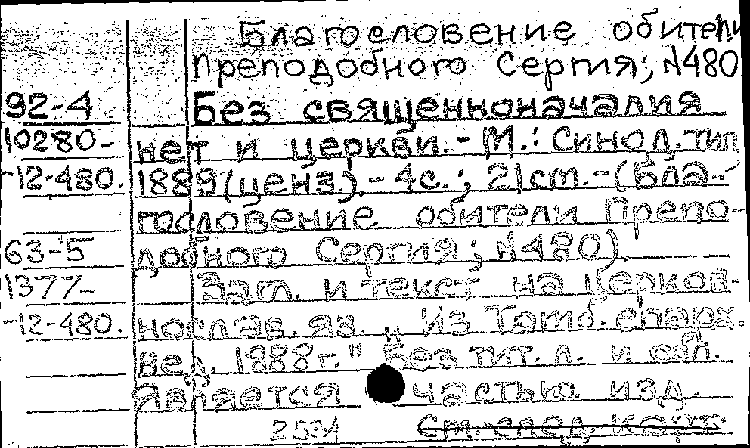 Благословение обители
Преподобного Сергия; N480
92-4 Без священноначалия
10280- нет и церкви.- М.: Синод. тип.
-12-480. 1889(ценз.).- 4с.; 21см.-(Бла-
гословение обители Препо-
63-5 добного Сергия; N480)
1377- Загл. и текст на церков-
-12-480. нослав. яз. „Из Тамб. епарх.
вед. 1888г." Без тит. л. и обл.
Является частью изд.
Ст. след. карт.